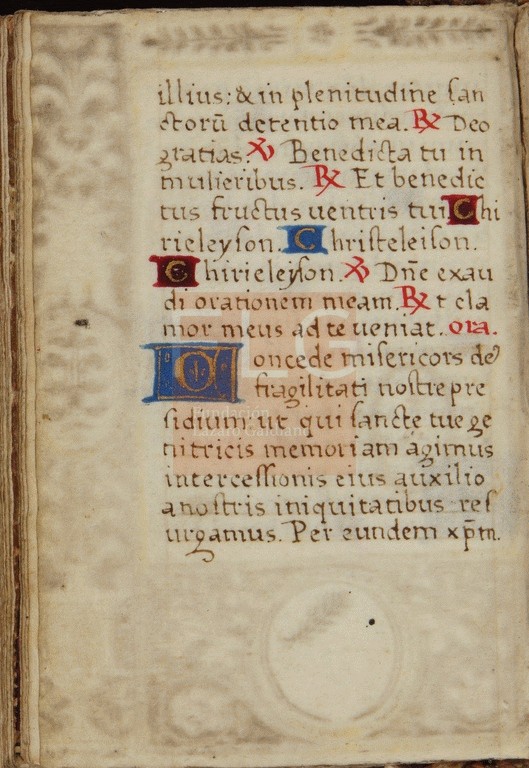 illius: & in plenitudine san
ctorū detentio mea. ℟ Deo
gratias. ℣ Benedicta tu in
mulieribus. ℟ Et benedic
tus fructus uentris tui Chi
rieleyson. Christeleison.
Chirieleyson. ℣ Dn̄e exau
di orationem meam. ℟ t cla
mor meus ad te ueniat. ora.
Concede misericors de᷒
fragilitati nostre pre
sidium ut qui sancte tue ge
nitricis memoriam agimus
intercessionis eius auxilio
a nostris iniquitatibus res
urgamus. Per eundem xp̄m.
FLG
Fundación
Lázaro Galdiano